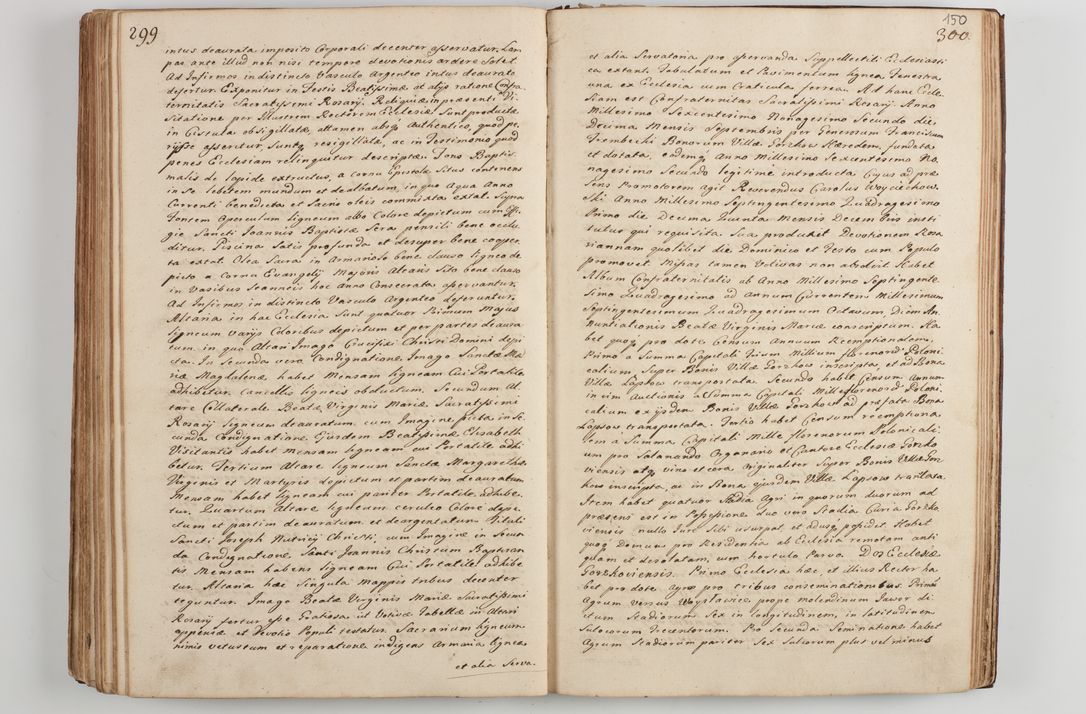 299
intus deaurata imposito Corporali decenter asservatur. Lam-
pas ante illud non nisi tempore devotionis ardere solet.
Ad Infirmos in distincto Vasculo Argenteo intus deaurato
defertur. Exponitur in Festis Beatissimæ et alijs ratione Confra
ternitatis Sacratissimi Rosarij. Reliquiæ in præsenti Vi-
sitatione per Illustrem Rectorem Ecclesiæ Sunt productæ
in Cistula obsigillatæ, attamen absq Authentico, quod pe-
rijsse asseritur, Suntq resigillatæ, ac in Testimonio quod
penes Ecclesiam relinquitur descriptæ. Fons Baptis-
malis de lapide extructus, a cornu Epistolæ Situs continens
in Se lebetem mundum et dealbatum, in quo Aqua Anno
Currenti benedicta et Sacris oleis commixta extat. Supra
Fontem operculum ligneum albo Colore depictum cum Effi-
gie Sancti Joannis Baptistæ Sera pensili bene occlu
ditur. Piscina Satis profunda et desuper bene cooper-
ta extat. Olea Sacra in Armariolo bene clauso ligneo de
picto a Cornu Evangelij Majoris Altaris Sito bene clauso
in Vasibus Stanneis hoc Anno Consecrata asservantur.
Ad Infirmos in distincto Vasculo Argenteo deferuntur.
Altaria in hac Ecclesia Sunt quatuor Primum Majus
ligneum varijs Coloribus depictum et per partes deaura
tum, in quo Altari Imago Crucifixi Christi Domini depi
cta. In Secunda vero Condignatione Imago Sanctæ Ma
riæ Magdalenæ, habet Mensam ligneam Cui Portatile
adhibetur, cancellis ligneis obductum. Secundum Al
tare Collaterale Beatæ Virginis Mariæ Sacratissimi
Rosarij ligneum deauratum cum Imagine picta, in Se
cunda Condignatione Ejusdem Beatissimæ Elisabeth
Visitantis habet mensam ligneam cui Portatile adhi
betur. Tertium Altare ligneum Sanctæ Margarethæ
Virginis et Martyris depictum et partim deauratum
Mensam habet ligneam cui pariter Portatile adhibe-
tur. Quartum Altare ligneum ceruleo Colore depi-
ctum et partim deauratum et deargentatum Tituli
Sancti Joseph Nutricij Christi, cum Imagine in Secun
da Condignatione Sancti Joannis Christum Baptizan
tis Mensam habens ligneam Cui Portatile adhibe
tur. Altaria hæc Singula Mappis tribus decenter
teguntur. Imago Beatæ Virginis Mariæ Sacratissimi
Rosarij fertur esse Gratiosa ut Votivæ Tabellæ in Altari
appensæ et devotio Populi testatur. Sacrarium ligneum
nimis vetustum et reparatione indigens Armaria lignea
et alia Serva-
150
300.
et alia Servatoria pro asservanda Suppellectili Ecclesiasti
ca extant. Tabulatum et Pavimentum lignea Fenestra
una ex Ecclesia cum Craticula ferrea. Ad hanc Eccle-
siam est Confraternitas Sacratissimi Rosarij Anno
Millesimo Sexcentesimo Nonagesimo Secundo die
Decima Mensis Septembris per Generosum Franciscum
Trembecki Bonorum Villæ Gorzkow Hæredem, fundata
et dotata, eademq Anno Millesimo Sexcentesimo No
nagesimo Secundo legitime introducta Cujus ad præ
sens Promotorem agit Reverendus Carolus Woyciechow-
ski Anno Millesimo Septingentesimo Quadragesimo
Primo die Decima Quarta Mensis Decembris insti
tutus qui requisita Sua produxit Devotionem Rosa
riannam quolibet die Dominico et Festo cum Populo
promovet Missas tamen Votivas non absolvit Habet
Album Confraternitatis ab Anno Millesimo Septingente
simo Quadragesimo ad Annum Currentem Millesimum
Septingentesimum Quadragesimum Octavum, Diem An-
nuntiationis Beatæ Virginis Mariæ conscriptum. Ha
bet quoq pro dote Censum Annuum Reemptionalem.
Primo a Summa Capitali Trium Millium florenor. Poloni
calium Super Bonis Villæ Gorzkow inscripta, et ad Bona
Villæ Łapszow transportata. Secundo habet Censum Annum
in vim Auctionis a Summa Capitali Mille florenor. Poloni
calium ex ijsdem Bonis Villæ Gorzkow ad præfata Bona
Łapszow transportata. Tertio habet Censum reemptiona
lem a Summa Capitali Mille florenorum Polonicali
um pro Salariando Organario et Cantore Ecclesiæ Gorzko
viensis atq vino et cera originaliter Super Bonis Villæ Gorz
kow inscripta, ac in Bona ejusdem Villæ Łapszow translata.
Item habet quatuor Stadia Agri in quorum duorum ad
præsens est in Possessione duo vero Stadia Curia Gorzko
viensis nullo Jure Sibi usurpat, et adusq possidet. Habet
quoq Domum pro Residentia ab Ecclesia remotam anti
quam et desolatam, cum hortulo Parvo. Dos Ecclesiæ
Gorzkoviensis. Primo Ecclesia hæc, et illius Rector ha
bet pro dote Agros pro tribus conseminationibus. Primo
Agrum versus Woysławice prope molendinum Jawor di
ctum Stadiorum Sex in longitudinem, in latitudinem
Sulcorum Trecentorum. Pro Secunda Seminatione habet
Agrum Stadiorum pariter Sex Sulcorum plus vel minus